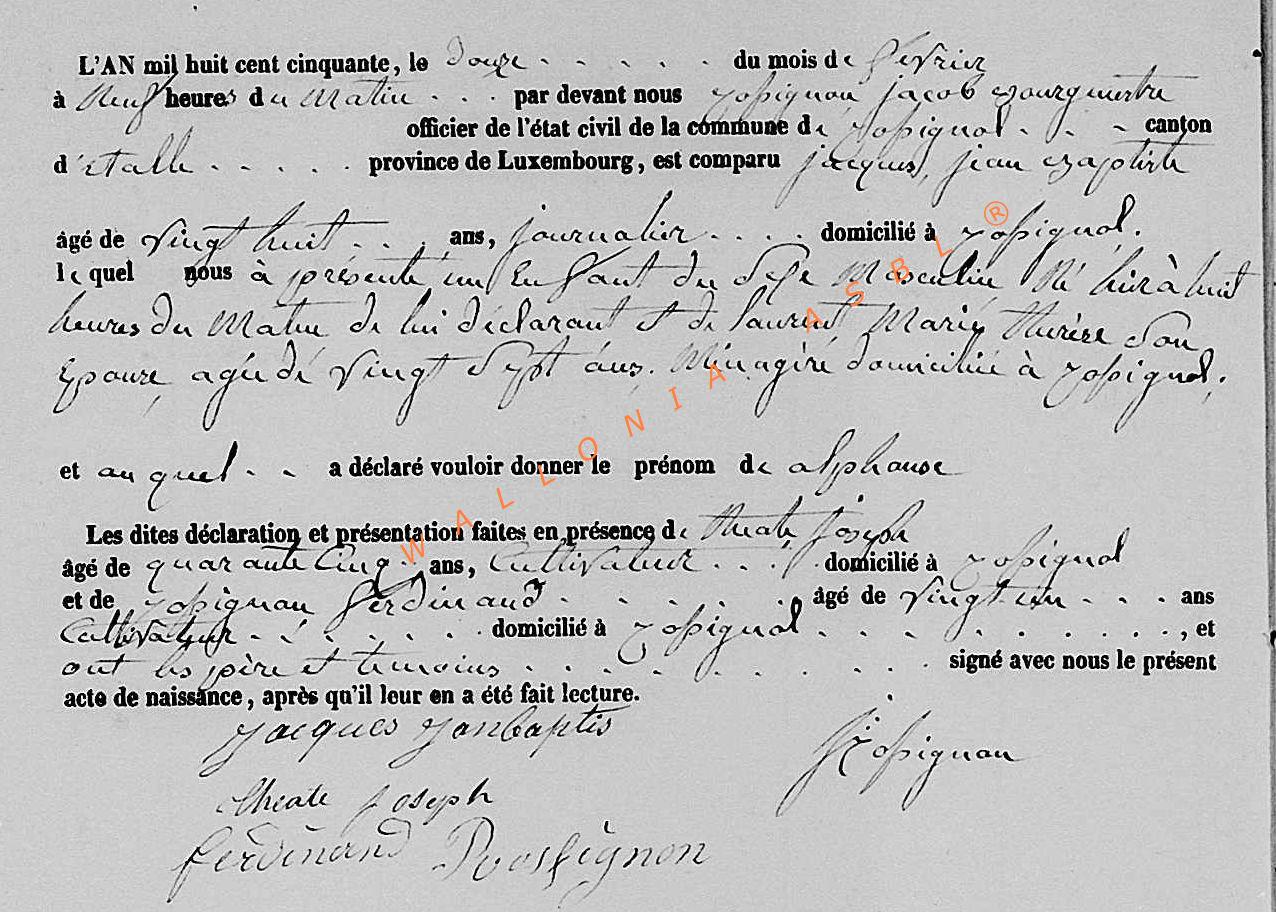 L'AN mil huit cent cinquante, le douze . . . . . du mois de février
à neuf heures du matin . . . par devant nous Rossignon jacob Bourguestre
officier de l'état civil de la commune de Rossignol . . . canton
d'étalle . . . . . province de Luxembourg, est comparu jacques, jean Baptiste
âgé de vingt huit . . , ans, journalier . . . . domicilié à Rossignol.
le quel nous à présenté un Enfant du Sexe Masculin Né hier à huit
heures du matin de lui déclarant et de laurent Marie thérèse Son
Epouze agée dé vingt Sept ans. Ménagère domiciliée à Rossignol,
et au quel . . a déclaré vouloir donner le prénom de alphonse
Les dites déclaration et présentation faites en présence de theate Joseph
âgé de quarante Cinq . ans, Cultivateur . . . . domicilié à Rossignol
et de Rossignon ferdinand . . . . . âgé de vingt un . . . ans
Cultivateur . . . . . . domicilié à Rossignol . . . . . . . . . , et
ont les père et temoins . . . . . . . . . signé avec nous le présent
acte de naissance, après qu'il leur en a été fait lecture.
jacques janbaptis
Rossignon
theate joseph
ferdinand Rossignon
WALLONIA ASBL ®